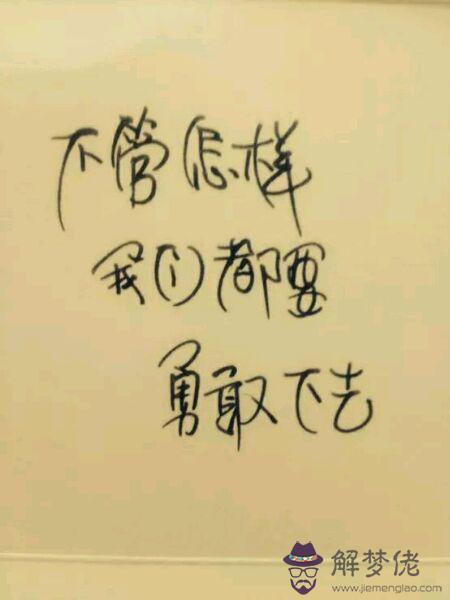 不管怎样
我们都要
勇敢下去
解梦佬
www.jiemenglao.com